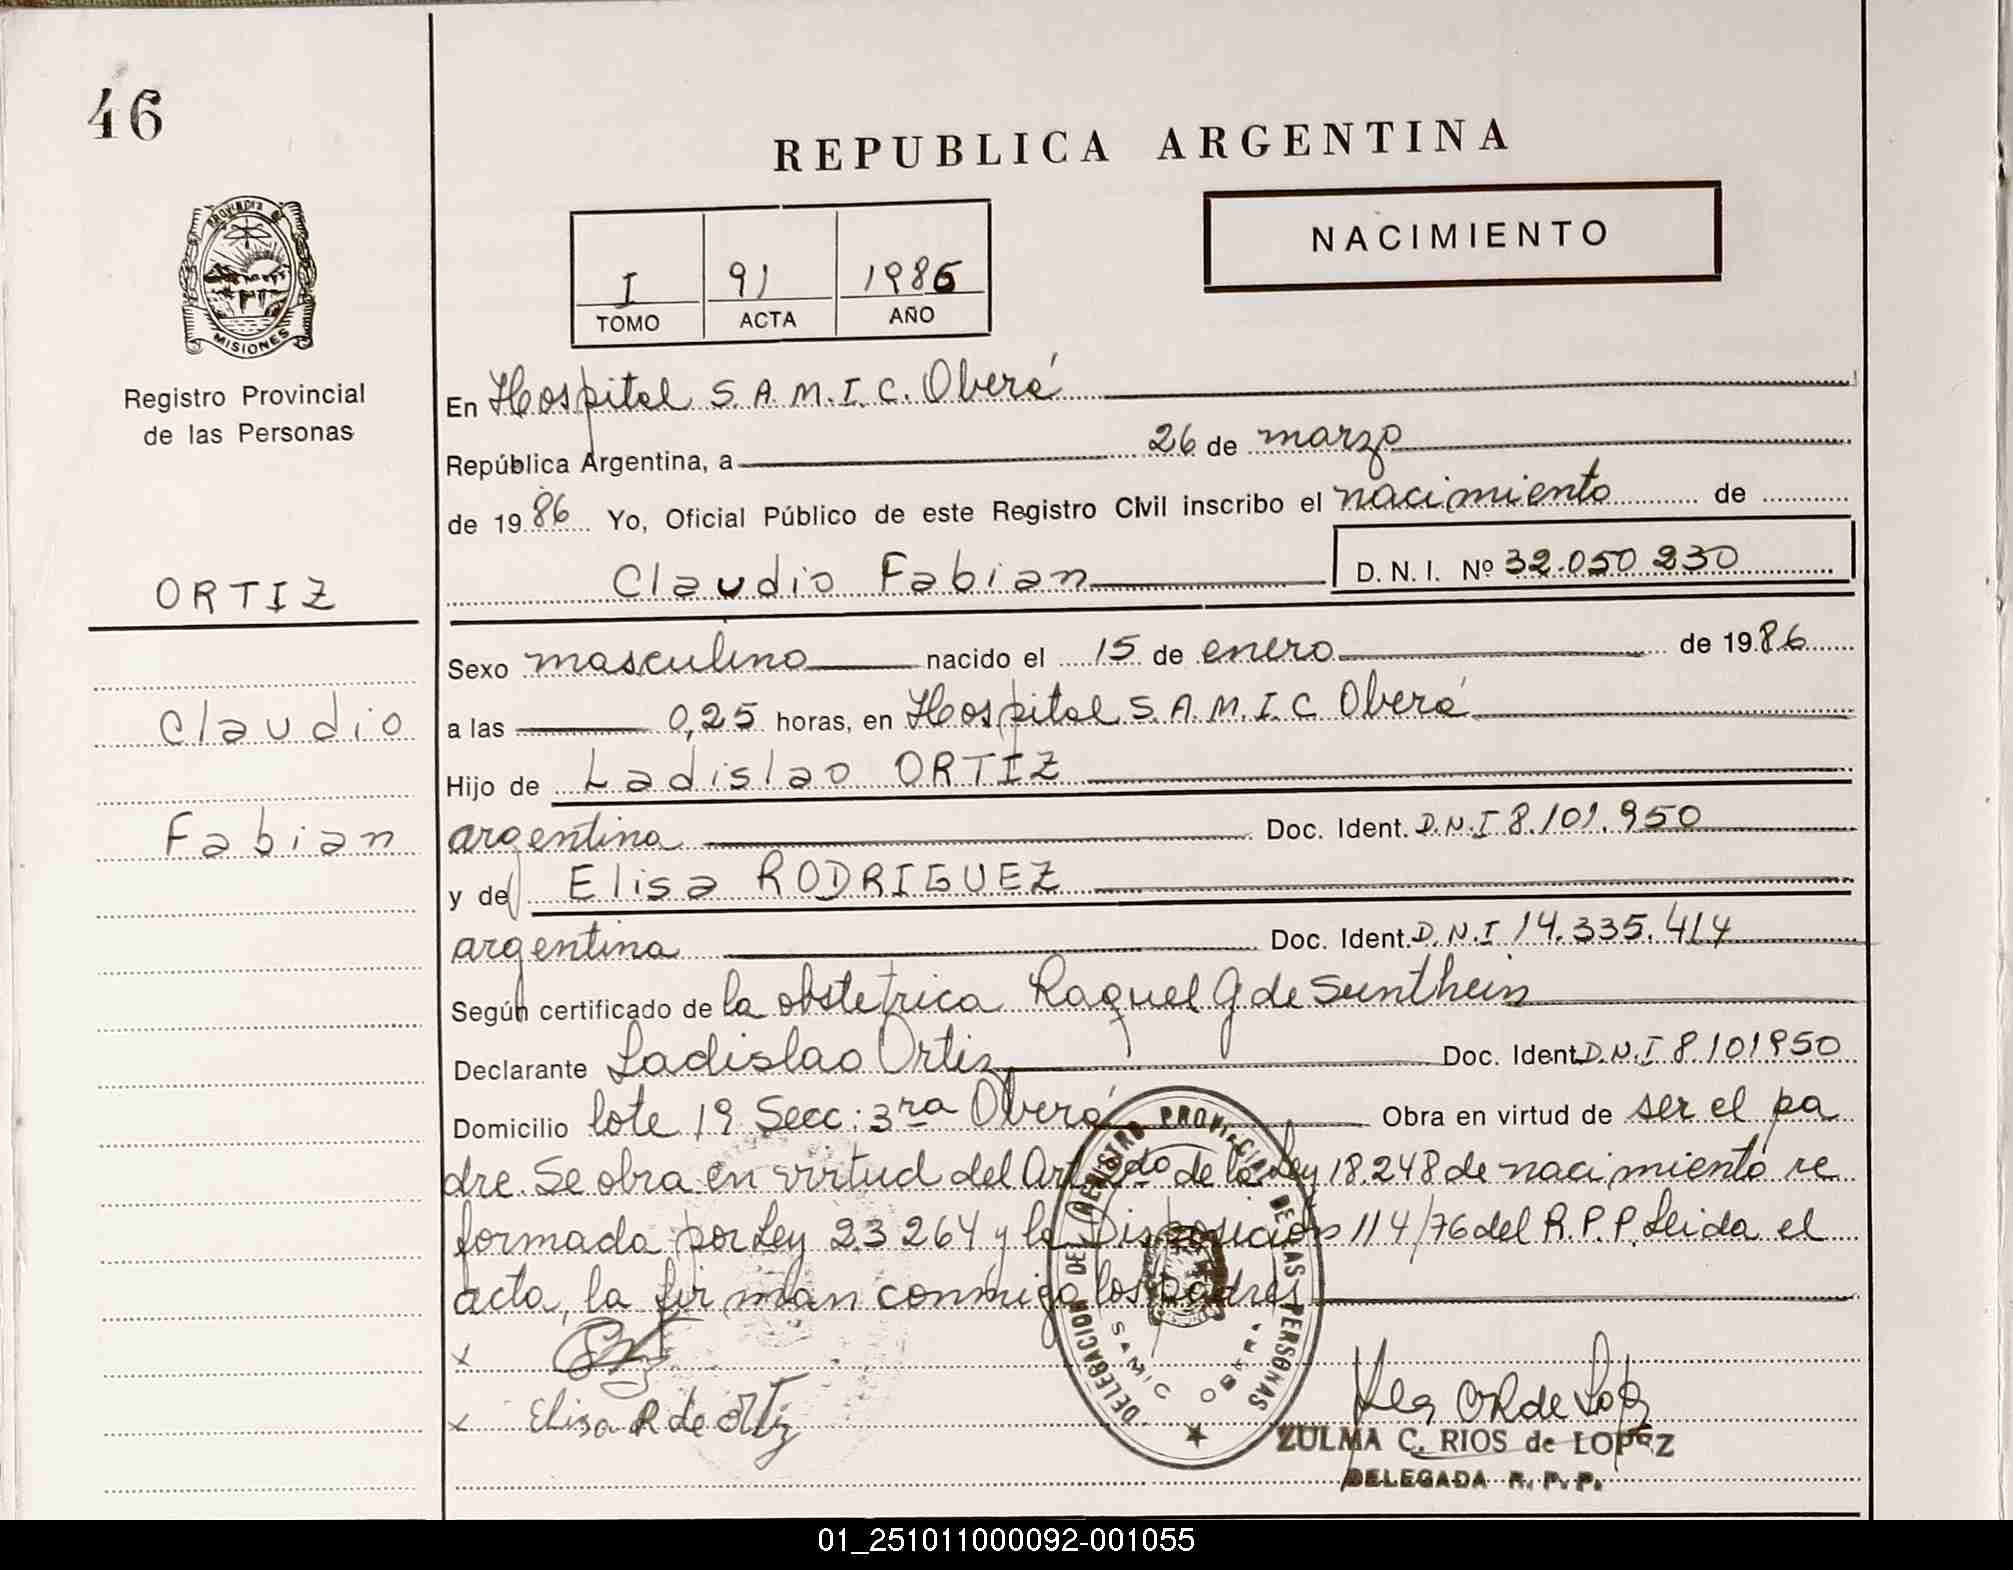 46
REPUBLICA ARGENTINA
NACIMIENTO
I 91 1986
TOMO ACTA AÑO
MISIONES
Registro Provincial
de las Personas
ORTIZ
Claudio
Fabian
En Hospital S.A.M.I.C. Oberá
República Argentina, a 26 de marzo
de 1986 Yo, Oficial Público de este Registro Civil inscribo el nacimiento de
Claudio Fabian D. N. I. Nº 32.050 230
Sexo masculino nacido el 15 de enero de 1986
a las 0,25 horas, en Hospital S.A.M.I.C Oberá
Hijo de Ladislao ORTIZ
argentina Doc. Ident. D.N.I 8.101.950
y de Elisa RODRIGUEZ
argentina Doc. Ident. D.N.I 14.335.414
Según certificado de la obstetrica Raquel G de
Declarante Ladislao Ortiz Doc. Ident D.N.I 8.101950
Domicilio lote 19 Secc: 3ra Oberá Obra en virtud de ser el pa
dre. Se obra en virtud del Art 2do de la Ley 18.248 de nacimiento re
formada por Ley 23264 y la Disposición 114/76 del R.P.P. Leida el
acta, la firman conmigo los padres
x
x Elisa R de Ortiz
DELEGACION DEL REGISTRO PROVINCIAL DE LAS PERSONAS
SAMIC OBERA
ZULMA C. RIOS de LOPEZ
DELEGADA R. P. P.
01_251011000092-001055